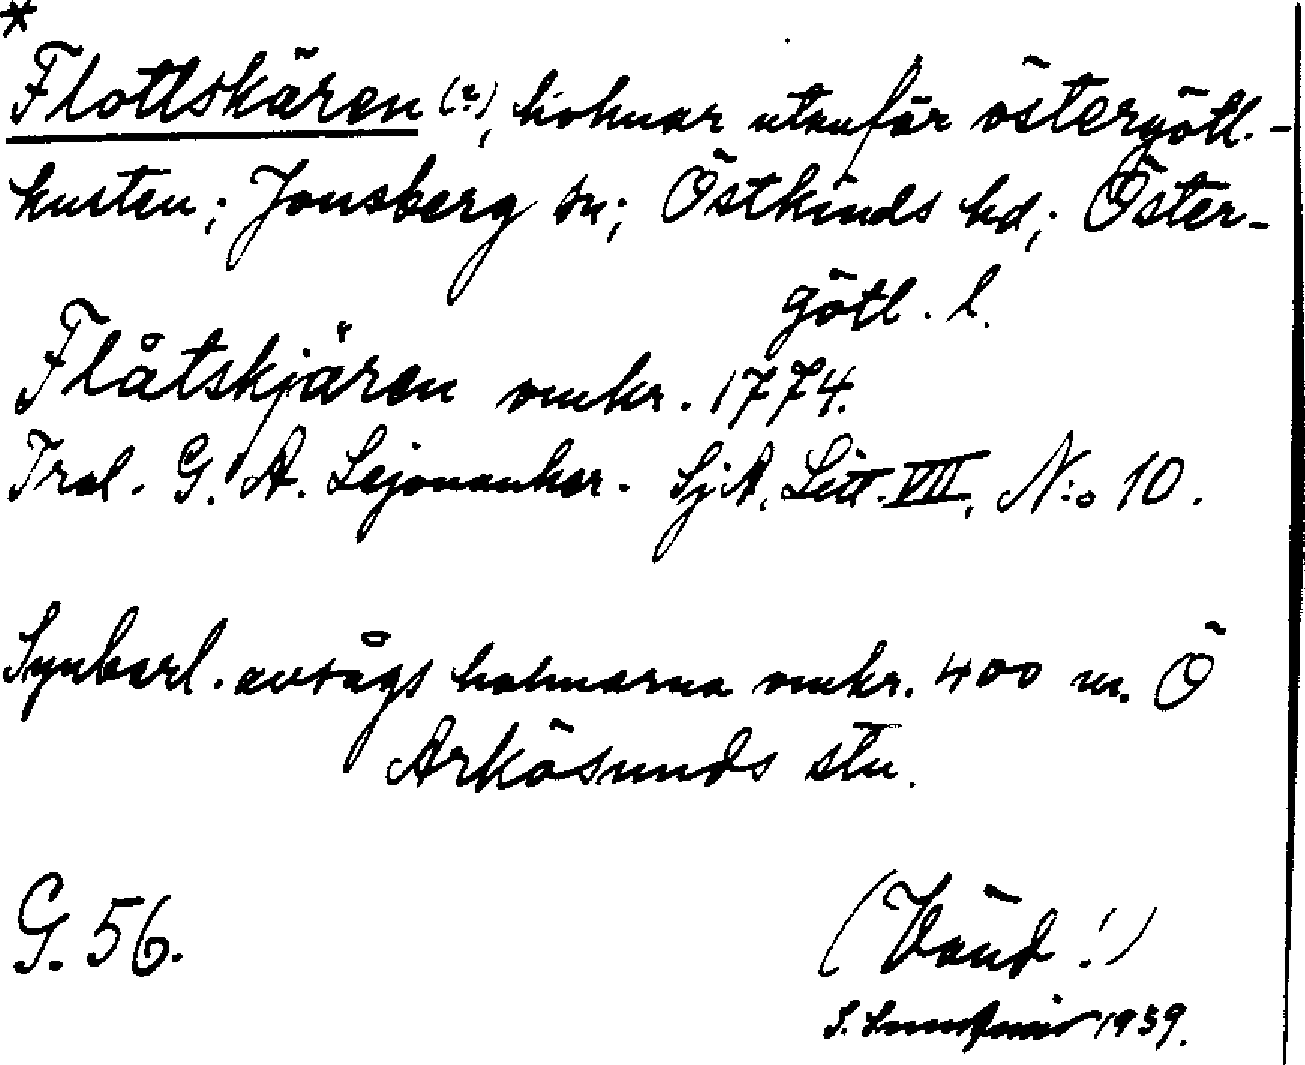 *
Flottskären (?), holmar utanför östergötl.-
kusten; Jonsberg sn; Östkinds hd; Öster-
götl. l.
Flåtskjären omkr. 1774.
Trol. G. A. Lejonanker. SjA. Litt. VII, N:o 10.
Synbarl. avsågs holmarna omkr. 400 m. Ö
Arkösunds stn.
G. 56.
(Vänd!)
S. 1939.